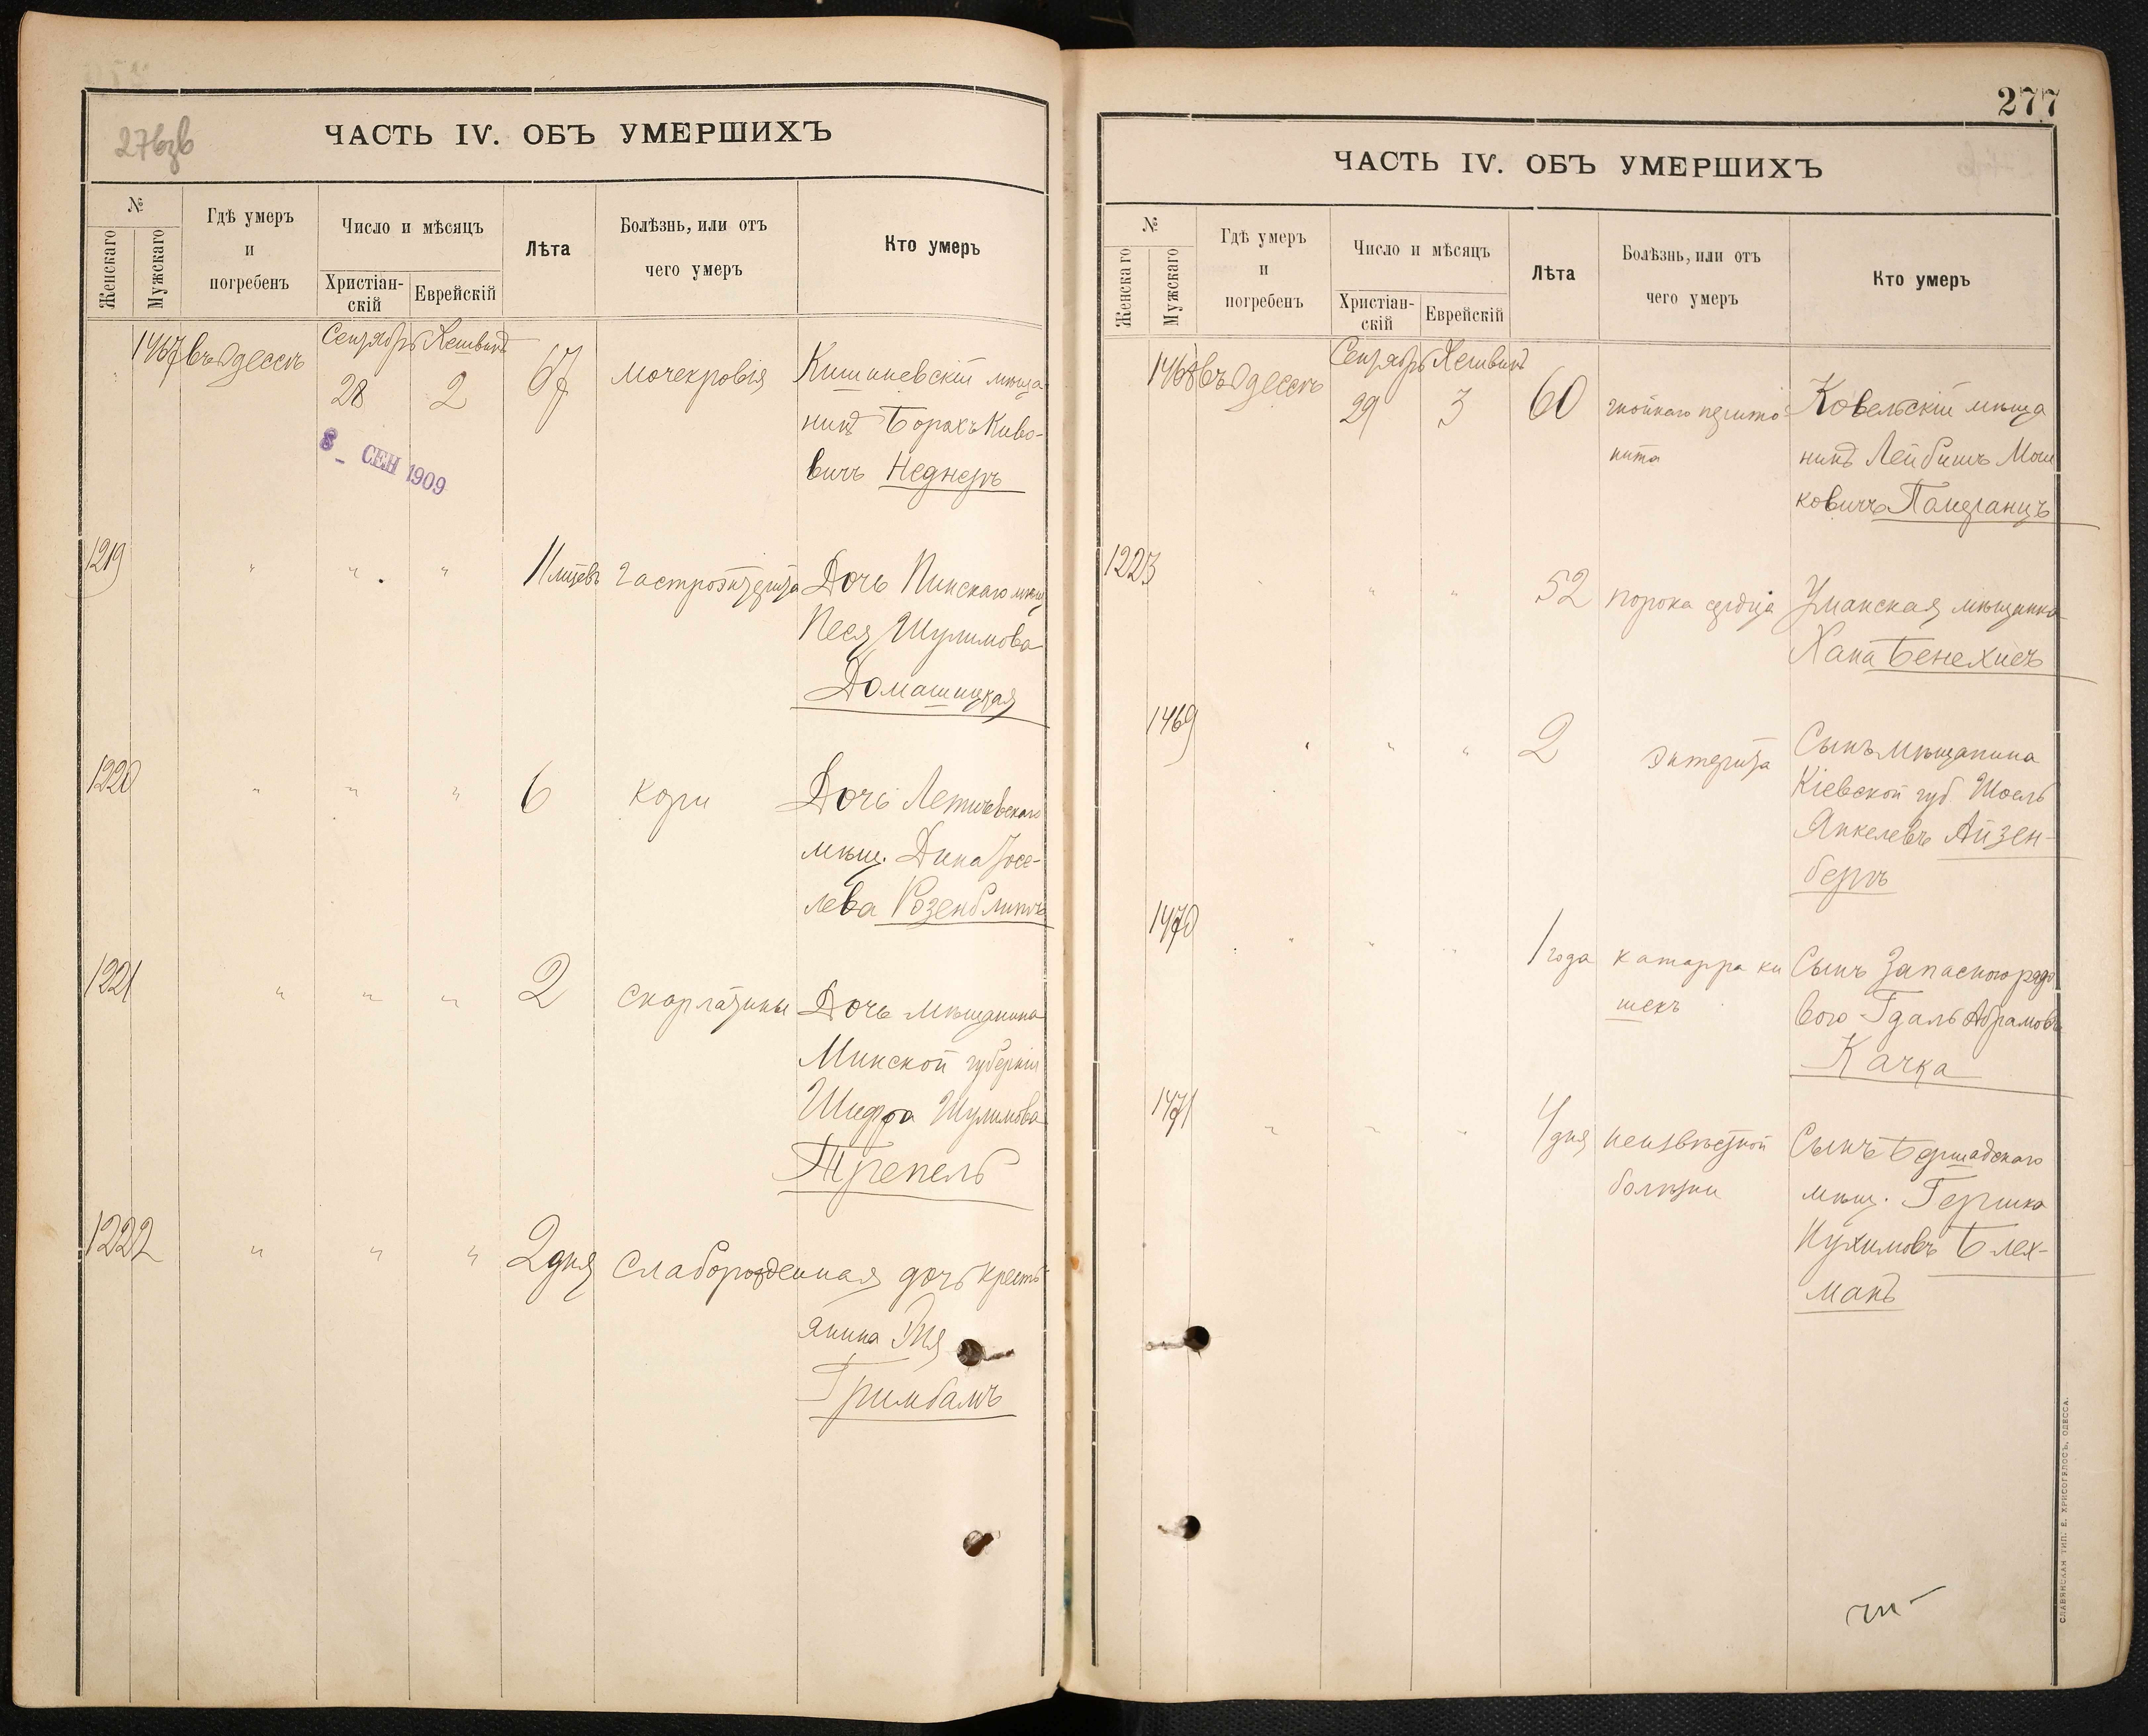 276зв
ЧАСТЬ IV. ОБЪ УМЕРШИХЪ
№
Женскаго
Мужскаго
Гдѣ умеръ
и
погребенъ
Число и мѣсяцъ
Христіан-
скій
Еврейскій
Лѣта
Болѣзнь, или отъ
чего умеръ
Кто умеръ
1467 въ Одессѣ Сентябрь Хешванъ
28 2 67 мочекровія Кишиневскій мѣща
нинъ Борахъ Киво-
вичъ Неднеръ
8- СЕН 1909
1219 " " " 11 мѣсяц Гастроэнтерита Дочь Пинскаго мѣщ
Песя Шулимова
Домашицкая
1220 " " " 6 кори Дочь Летичевскаго
мѣщ. Дина Іосе-
лева Розенблитъ
1221 " " " 2 скарлатины Дочь мѣщанина
Минской губерніи
Шифра Шулимова
Трепель
1222 " " " 2 дня Слаборожденная дочь кресть
янина Эня
Гримбамъ
277
ЧАСТЬ IV. ОБЪ УМЕРШИХЪ
№
Женскаго
Мужскаго
Гдѣ умеръ
и
погребенъ
Число и мѣсяцъ
Христіан-
скій
Еврейскій
Лѣта
Болѣзнь, или отъ
чего умеръ
Кто умеръ
1468 въ Одессѣ Сентябрь Хешванъ
29 3 60 гнойнаго перито Ковельскій мѣща
нита нинъ Лейбишъ Мош
ковичъ Памеранцъ
1223 " " " 52 порока сердца Уманская мѣщанка
Хана Бенехисъ
1469 " " " 2 энтерита Сынъ мѣщанина
Кіевской губ Шоель
Янкелевъ Айзен-
бергъ
1470 " " " 1 года катарра ки Сынъ Запаснаго рядо
шекъ вого Гдаль Абрамовъ
Качка
1471 " " " 4 дня неизвѣстной Сынъ Бершадскаго
болѣзни мѣщ. Гершка
Нухимовъ Блех-
манъ
СЛАВЯНСКАЯ ТИП. Е. ХРИСОГЕЛОСЪ, ОДЕССА.